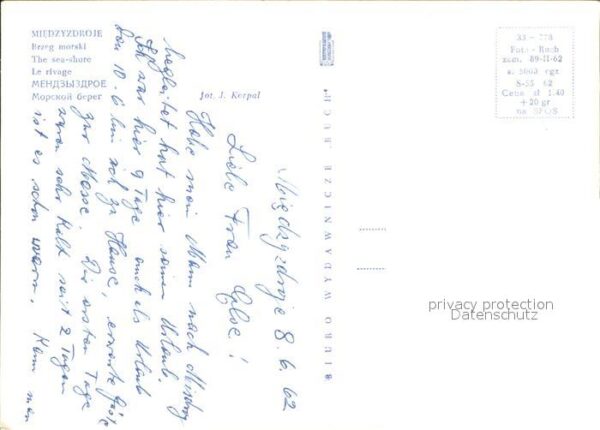 MIĘDZYZDROJE
Brzeg morski
The sea-shore
Le rivage
МЕНДЗЫЗДРОЕ
Морской берег
fot. J. Korpal
BIURO WYDAWNICZE „RUCH”
33 — 778
Fot. - Ruch
zam. 89-II-62
n. 5000 egz
S-55 62
Cena zł 1.40
+ 20 gr
na SFOS
privacy protection
Datenschutz
Międzyzdroje 8.6.62
Liebe Frau !
Habe mein Mann nach
begleitet hat hier seinen Urlaub.
Ich war hier 9 Tage auch als Urlaub
Den 10.6 bin ich zu Hause, erwarte Gäste
zur Messe. Die ersten Tage
waren sehr kalt seit 2 Tagen
ist es schon warm. Kann man